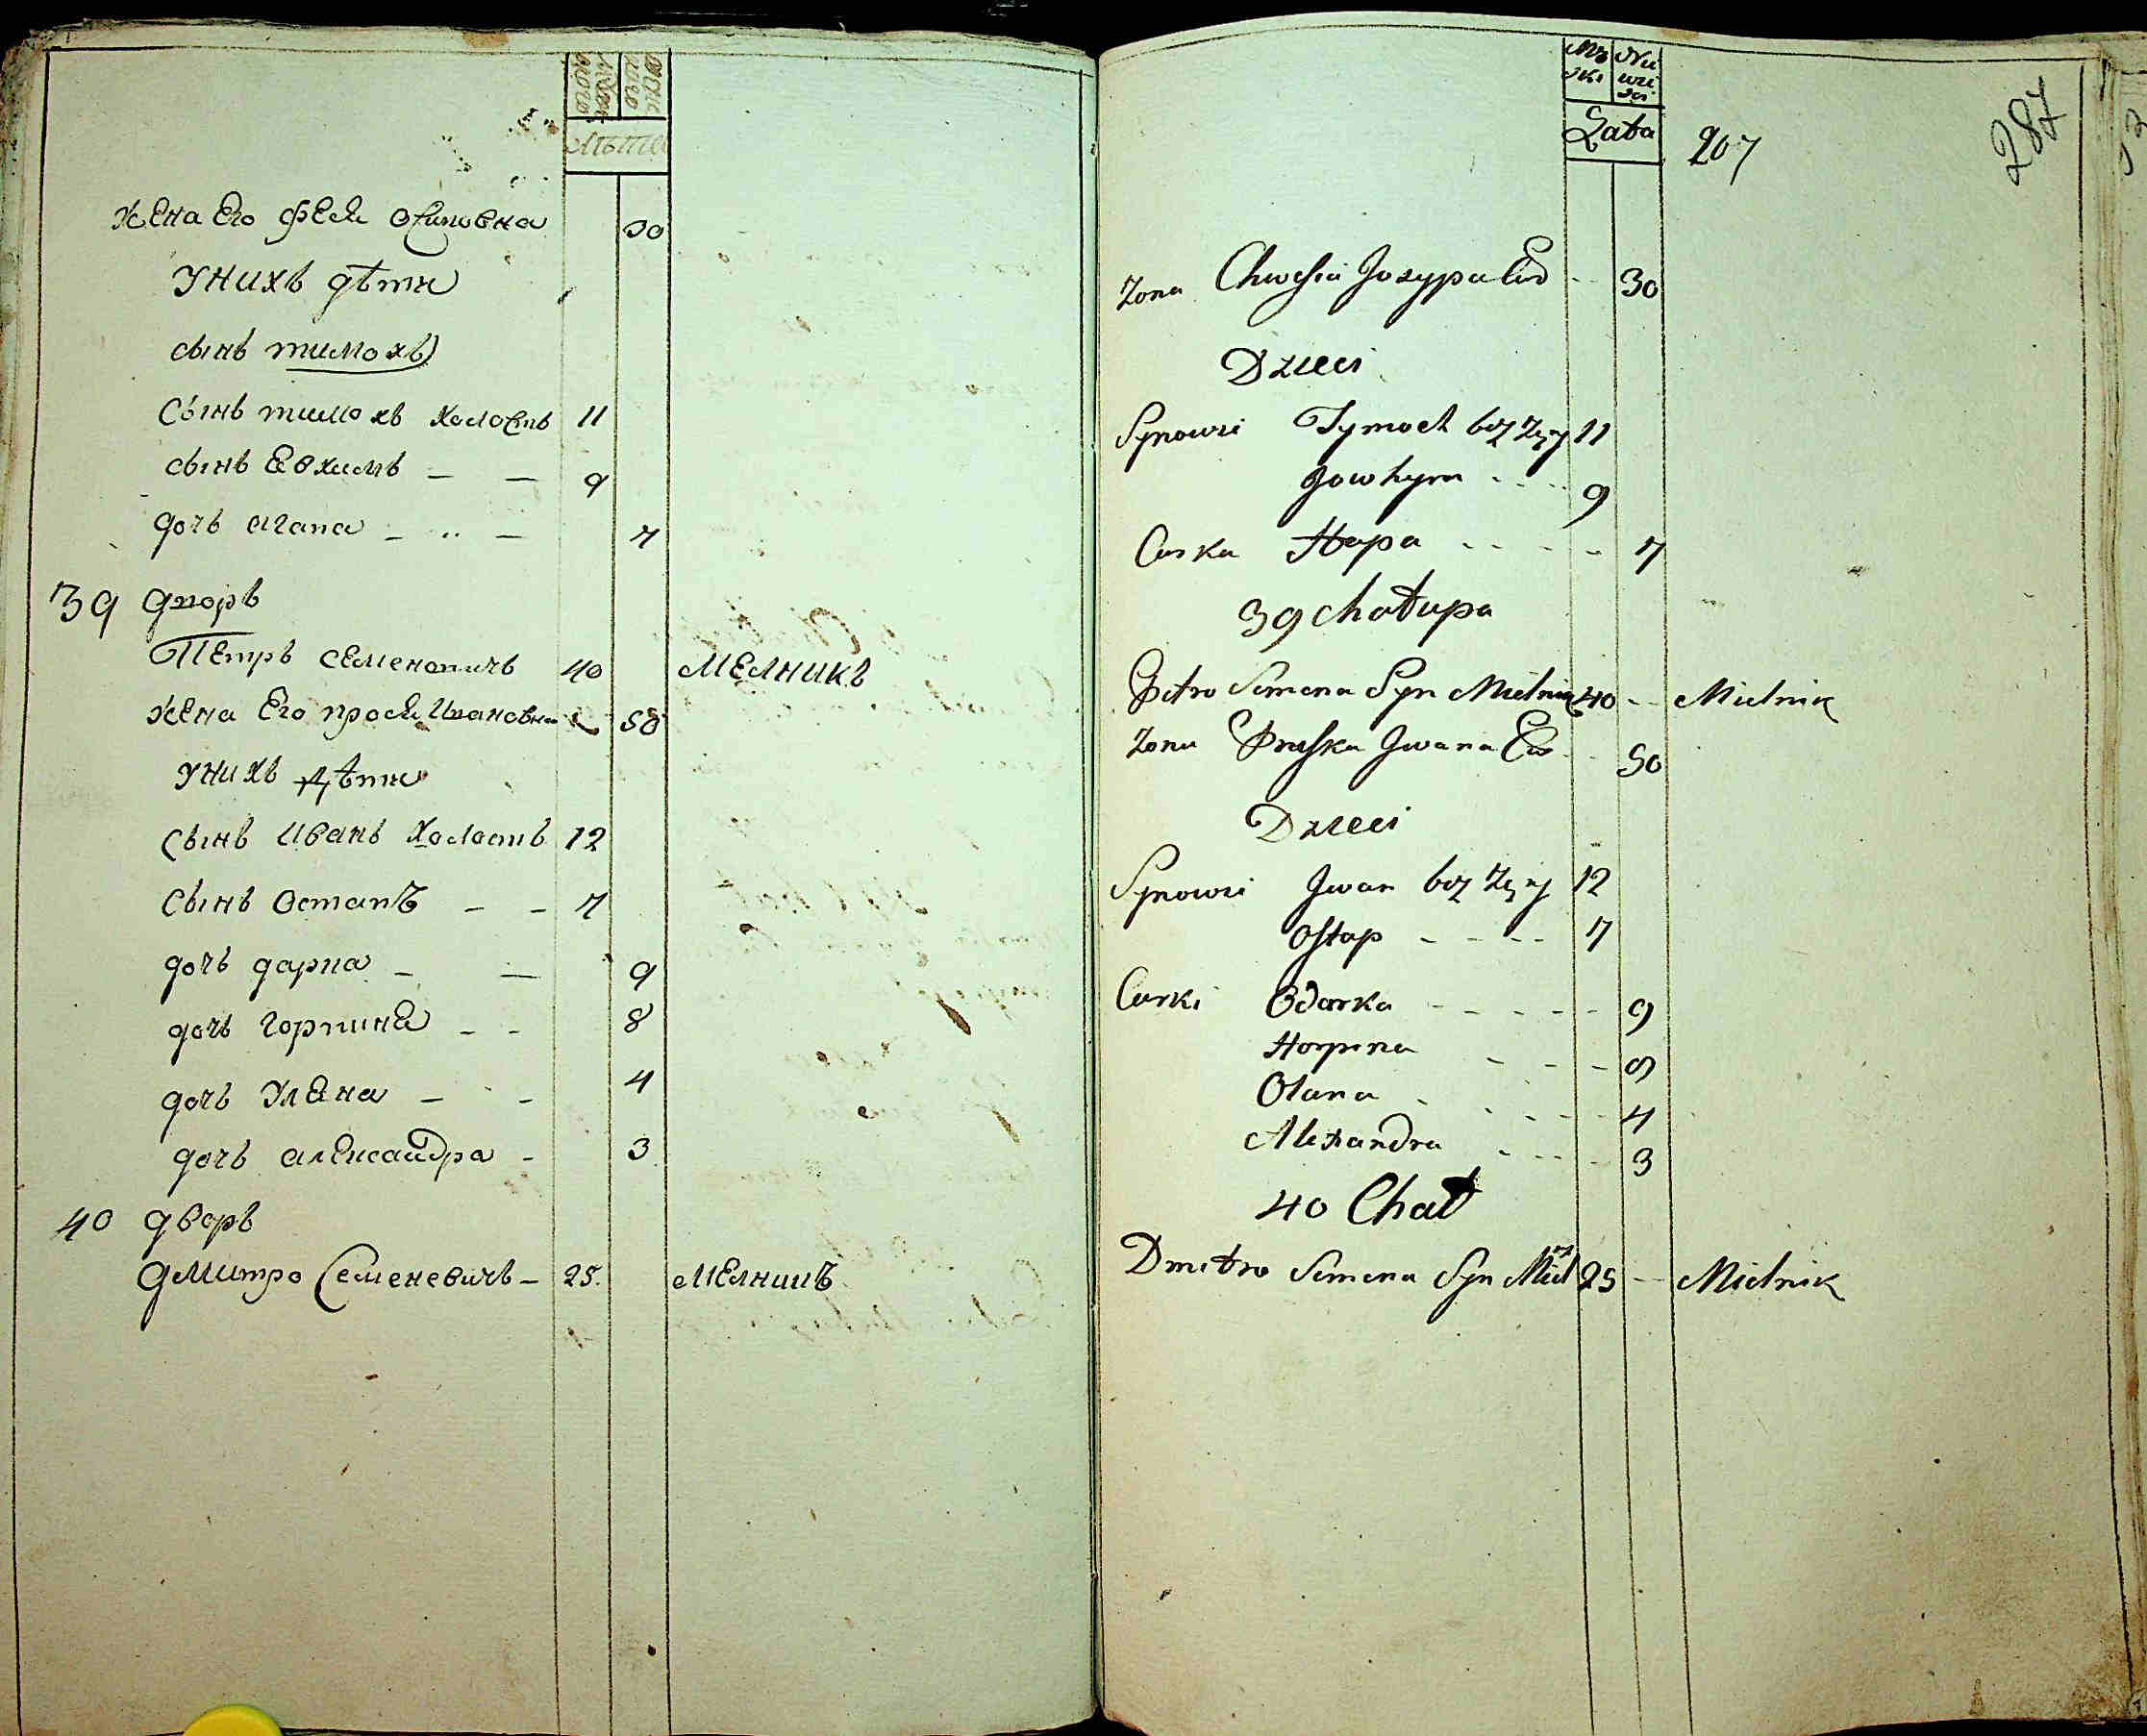 Лѣта
жена Его феся Осиповна 30
унихъ дѣти
сынъ тимохъ
Сынъ тимохъ холостъ 11
сынъ Евхимъ — — 9
дочь агапа — .. — 7
39 дворъ
Петръ семеновичъ 40 мелникъ
жена Его прося Ивановна 50
унихъ дѣти
сынъ Иванъ холостъ 12
сынъ Остапъ — — 7
дочь дарпа — — 9
дочь горпина — - 8
дочь улѣна — - 4
дочь александра - 3
40 дворъ
дмитро Семеневичъ — 25. мелникъ
Męzki Niewieści
Lata
207
287
Żona Chwesia Jozypa Cur - - 30
Dzieci
Synowie Tymoch bez Żęny 11
Jowhym - - - - 9
Curka Hapa - - - - - 7
39 chałupa
Petro Semena Syn Mielnik 40 - - Mielnik
Żona Praska Jwana Cur - - 50
Dzieci
Synowie Jwan bez Żęny 12
Ostap - - - - 7
Curki Odarka - - - - - - 9
Horpina - - - 8
Olana - - - - - 4
Alexandra - - - - 3
40 Chał
Dmitro Semena Syn Miel 25 - - Mielnik